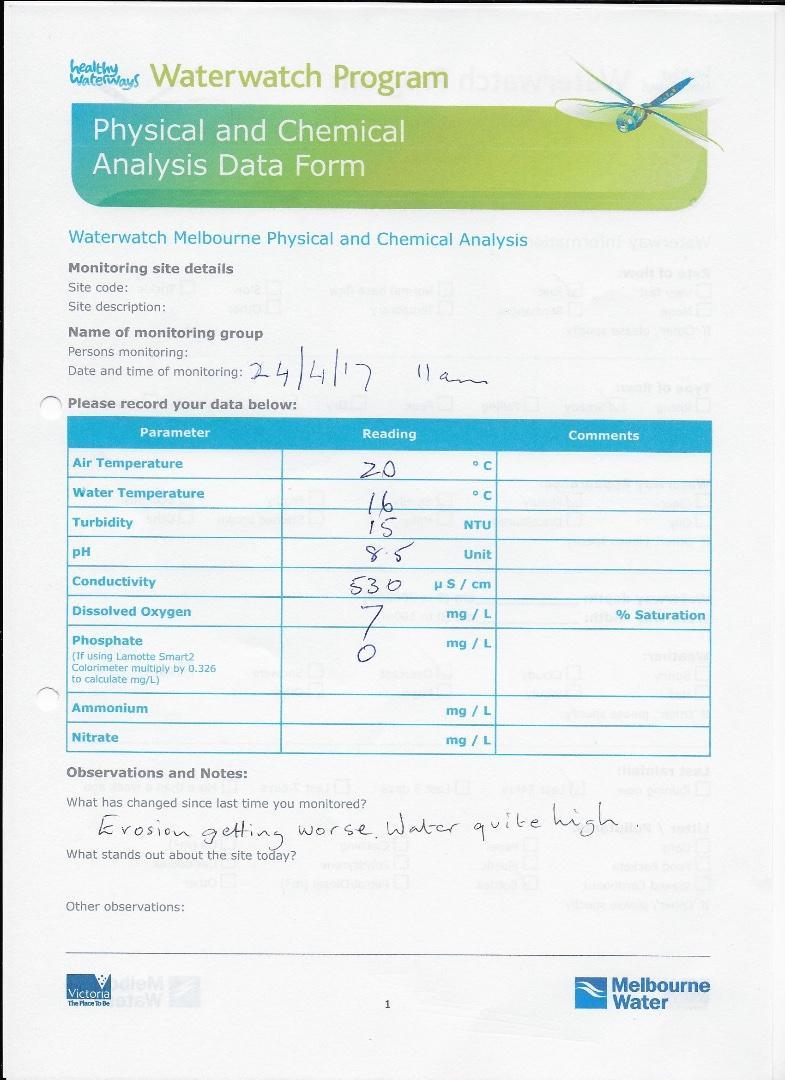 healthy Waterways Waterwatch Program
Physical and Chemical
Analysis Data Form
Waterwatch Melbourne Physical and Chemical Analysis
Monitoring site details
Site code:
Site description:
Name of monitoring group
Persons monitoring:
Date and time of monitoring: 24/4/17 11am
Please record your data below:
Parameter Reading Comments
Air Temperature 20 ° C
Water Temperature 16 ° C
Turbidity 15 NTU
pH 8.5 Unit
Conductivity 530 µ S / cm
Dissolved Oxygen 7 mg / L % Saturation
Phosphate 0 mg / L
(If using Lamotte Smart2
Colorimeter multiply by 0.326
to calculate mg/L)
Ammonium mg / L
Nitrate mg / L
Observations and Notes:
What has changed since last time you monitored?
Erosion getting worse. Water quite high
What stands out about the site today?
Other observations:
Victoria
The Place To Be
1
Melbourne
Water